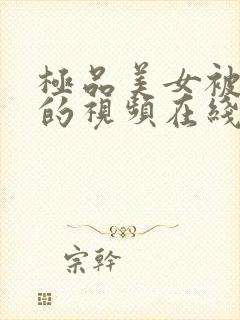 極品美女被
的視頻在綫
宗幹